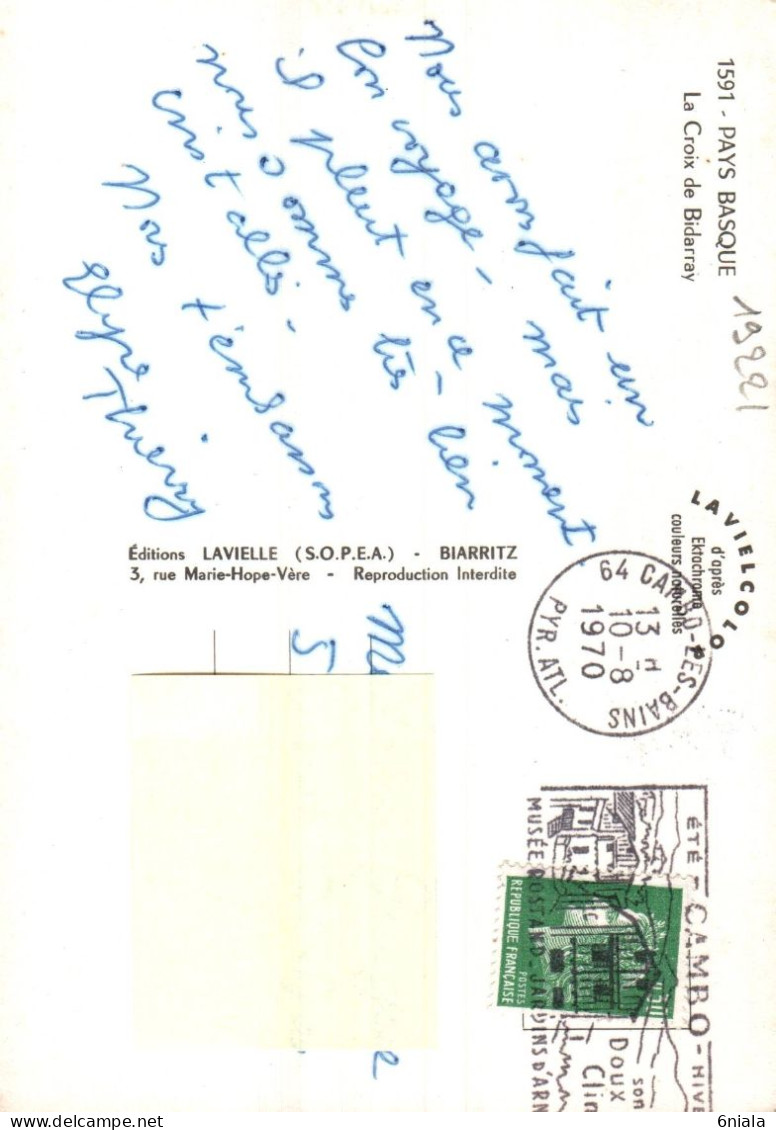 1591 - PAYS BASQUE
La Croix de Bidarray
19221
Nous avons fait un
bon voyage - mais
il pleut en ce moment.
nous sommes très bien
installés -
Nous t'embrassons
Thierry
Éditions LAVIELLE (S.O.P.E.A.) - BIARRITZ
3, rue Marie-Hope-Vère - Reproduction Interdite
LAVIELCOLOR
d'après
Ektachrome
couleurs naturelles
64 CAMBO-LES-BAINS
13 H
10-8
1970
PYR. ATL.
M
5
e
ÉTÉ - CAMBO - HIVE
son
Doux
Clim
MUSÉE ROSTAND - JARDINS D'ARN
RÉPUBLIQUE FRANÇAISE
POSTES